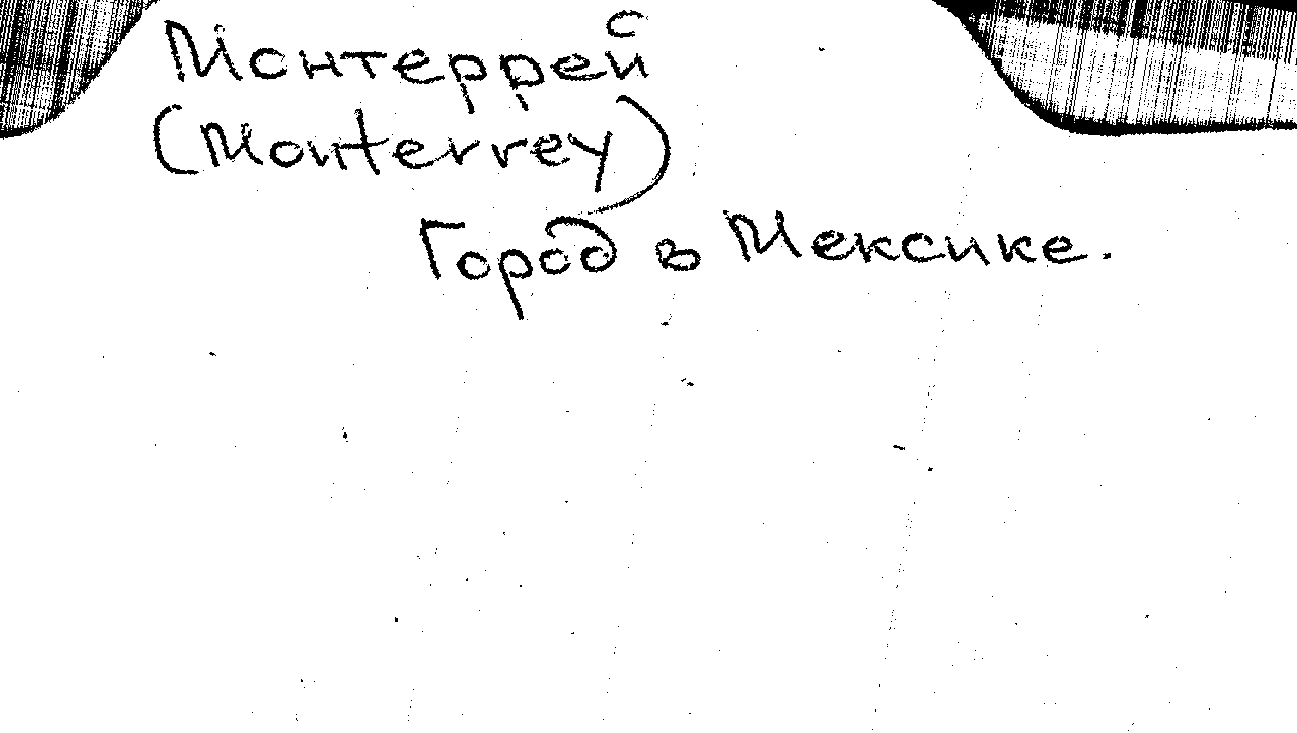 Монтеррей
(Monterrey)
Город в Мексике.